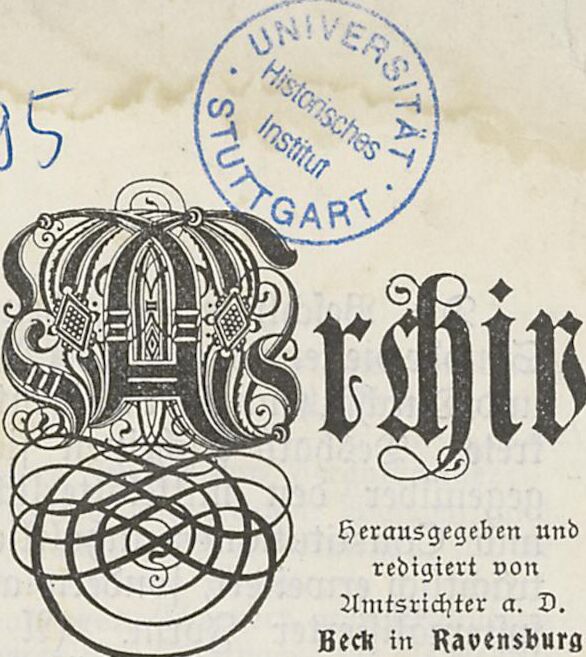 UNIVERSITÄT
Historisches
Institut
STUTTGART
95
Archiv
Herausgegeben und
redigiert von
Amtsrichter a. D.
Beck in Ravensburg